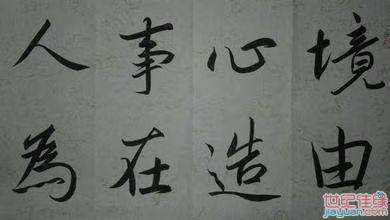 境由
心造
事在
人為
世纪佳缘
jiayuan.com